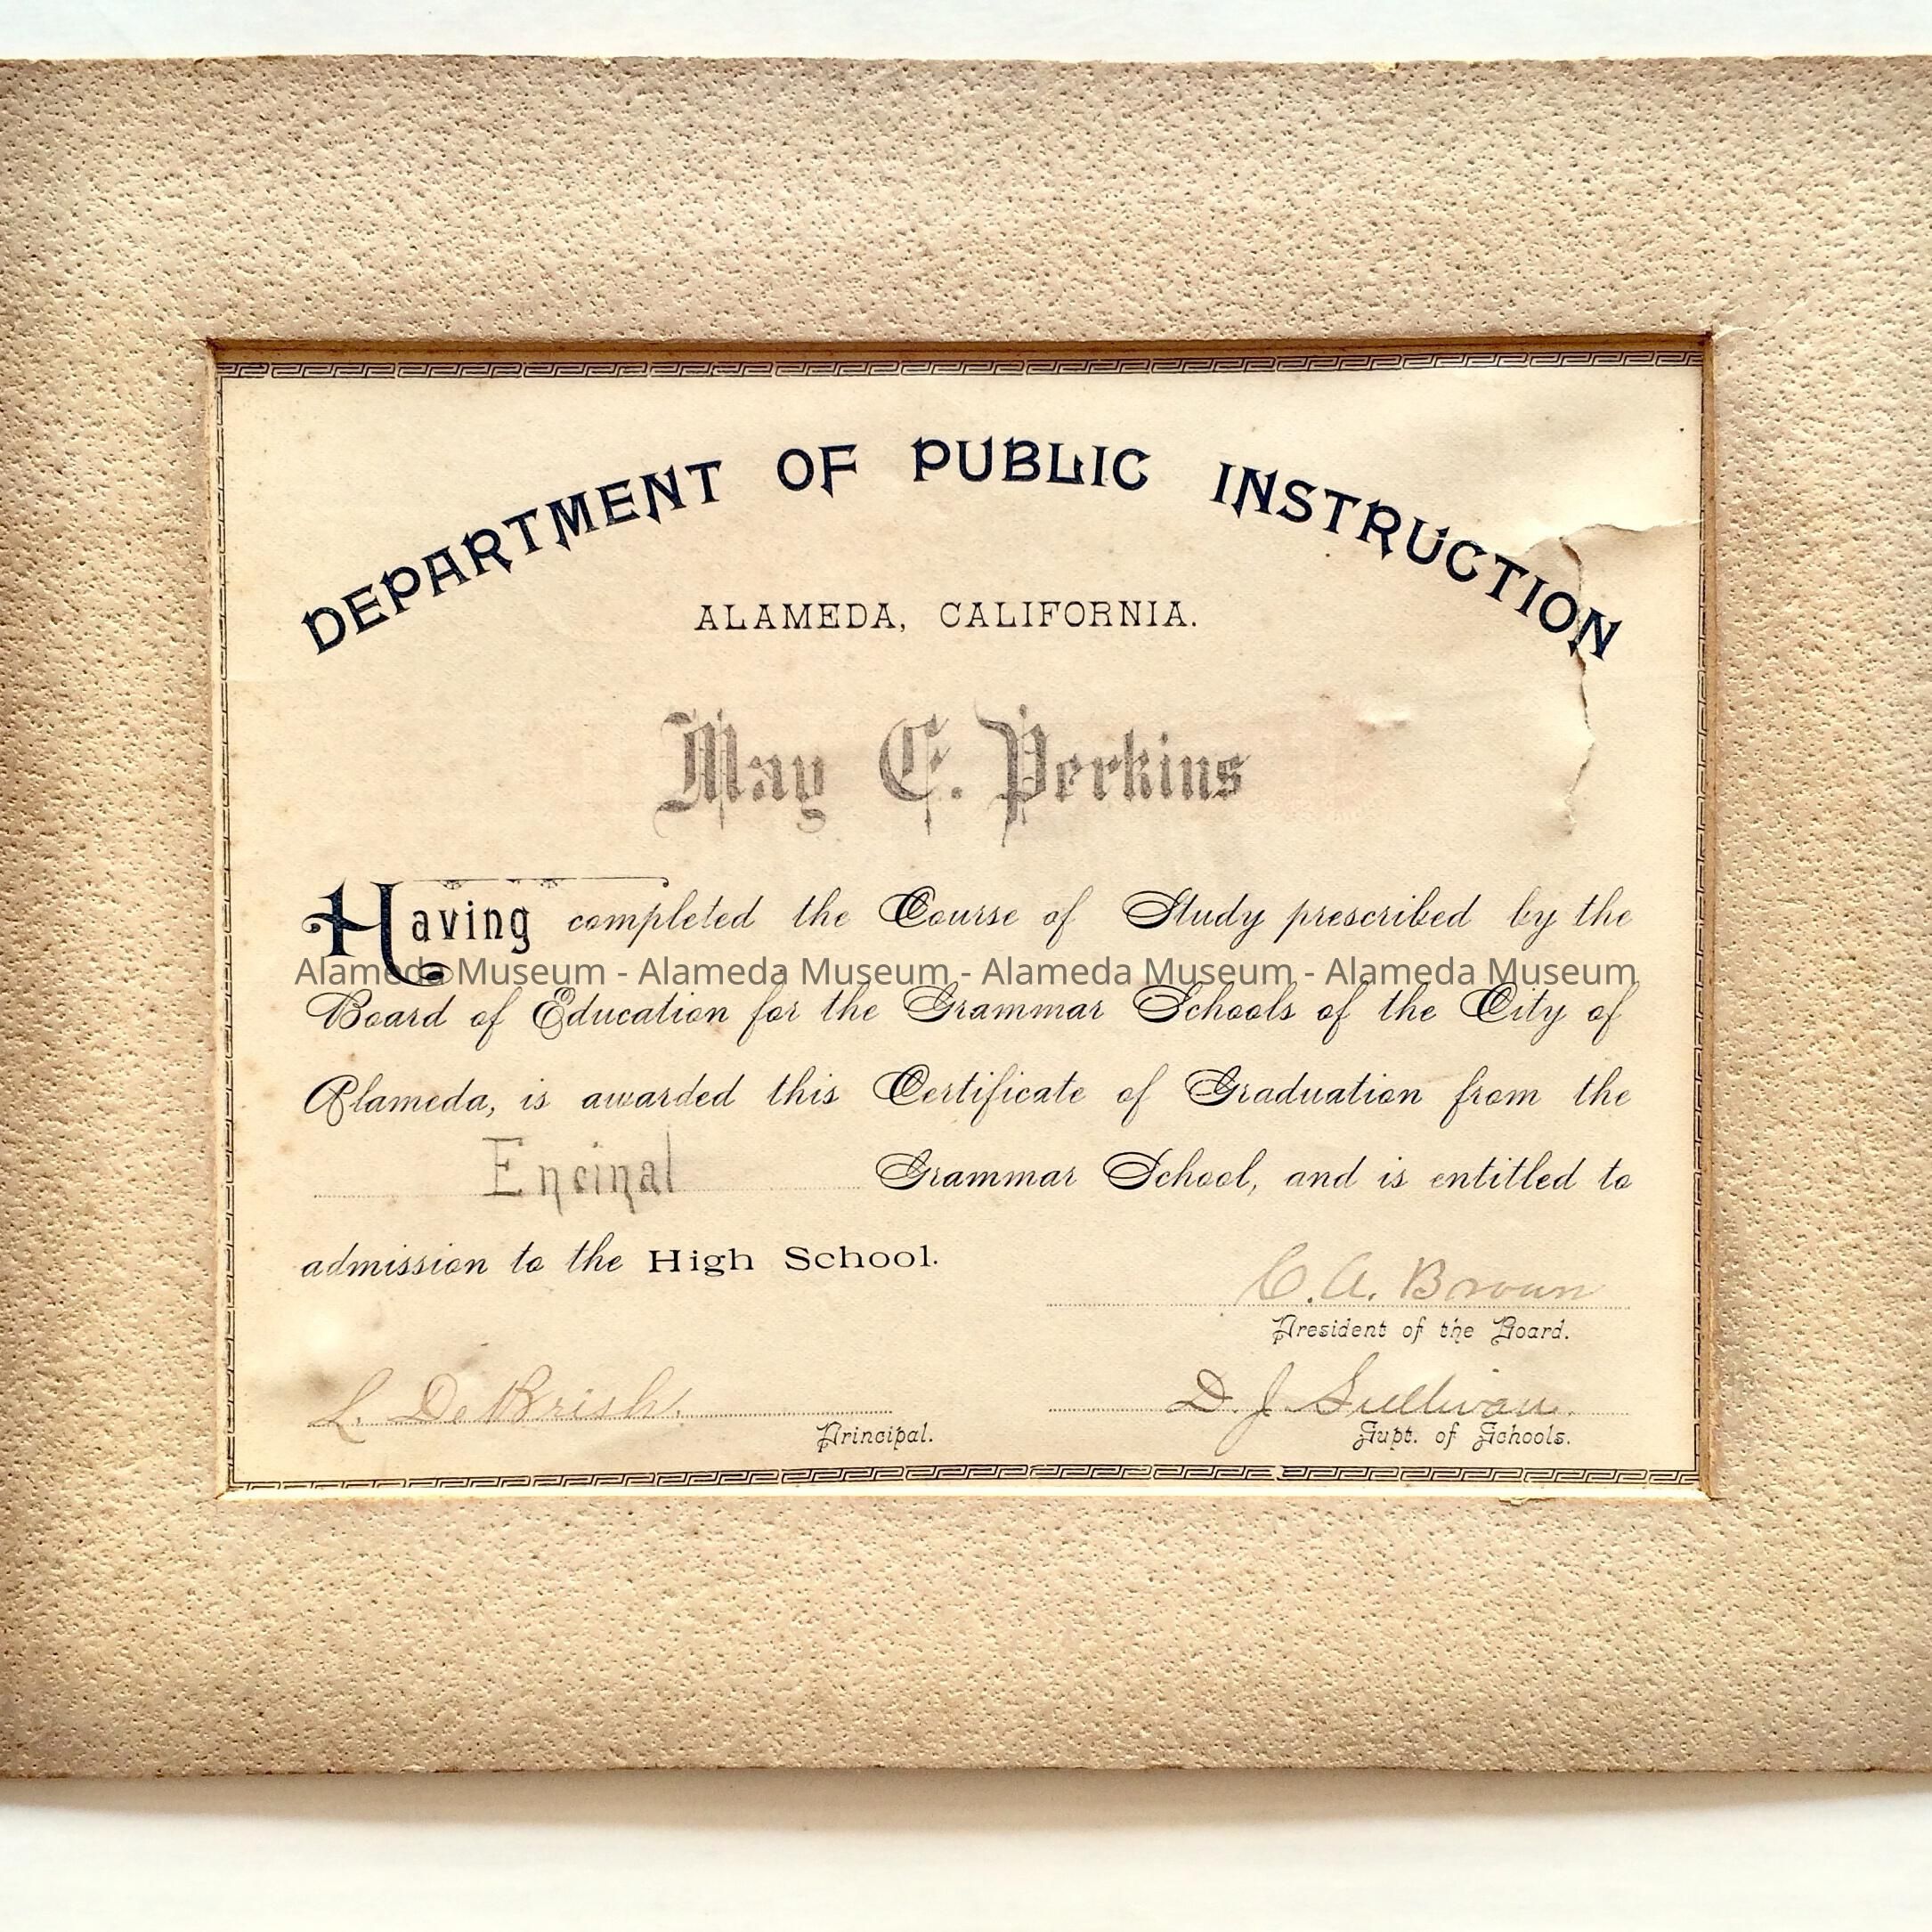 DEPARTMENT OF PUBLIC INSTRUCTION
ALAMEDA, CALIFORNIA.
May C. Perkins
Having completed the Course of Study prescribed by the
Alameda Museum - Alameda Museum - Alameda Museum - Alameda Museum
Board of Education for the Grammar Schools of the City of
Alameda, is awarded this Certificate of Graduation from the
Encinal Grammar School, and is entitled to
admission to the High School.
C. A. Brown
President of the Board.
L. D.
Principal.
D. J. Sullivan.
Supt. of Schools.